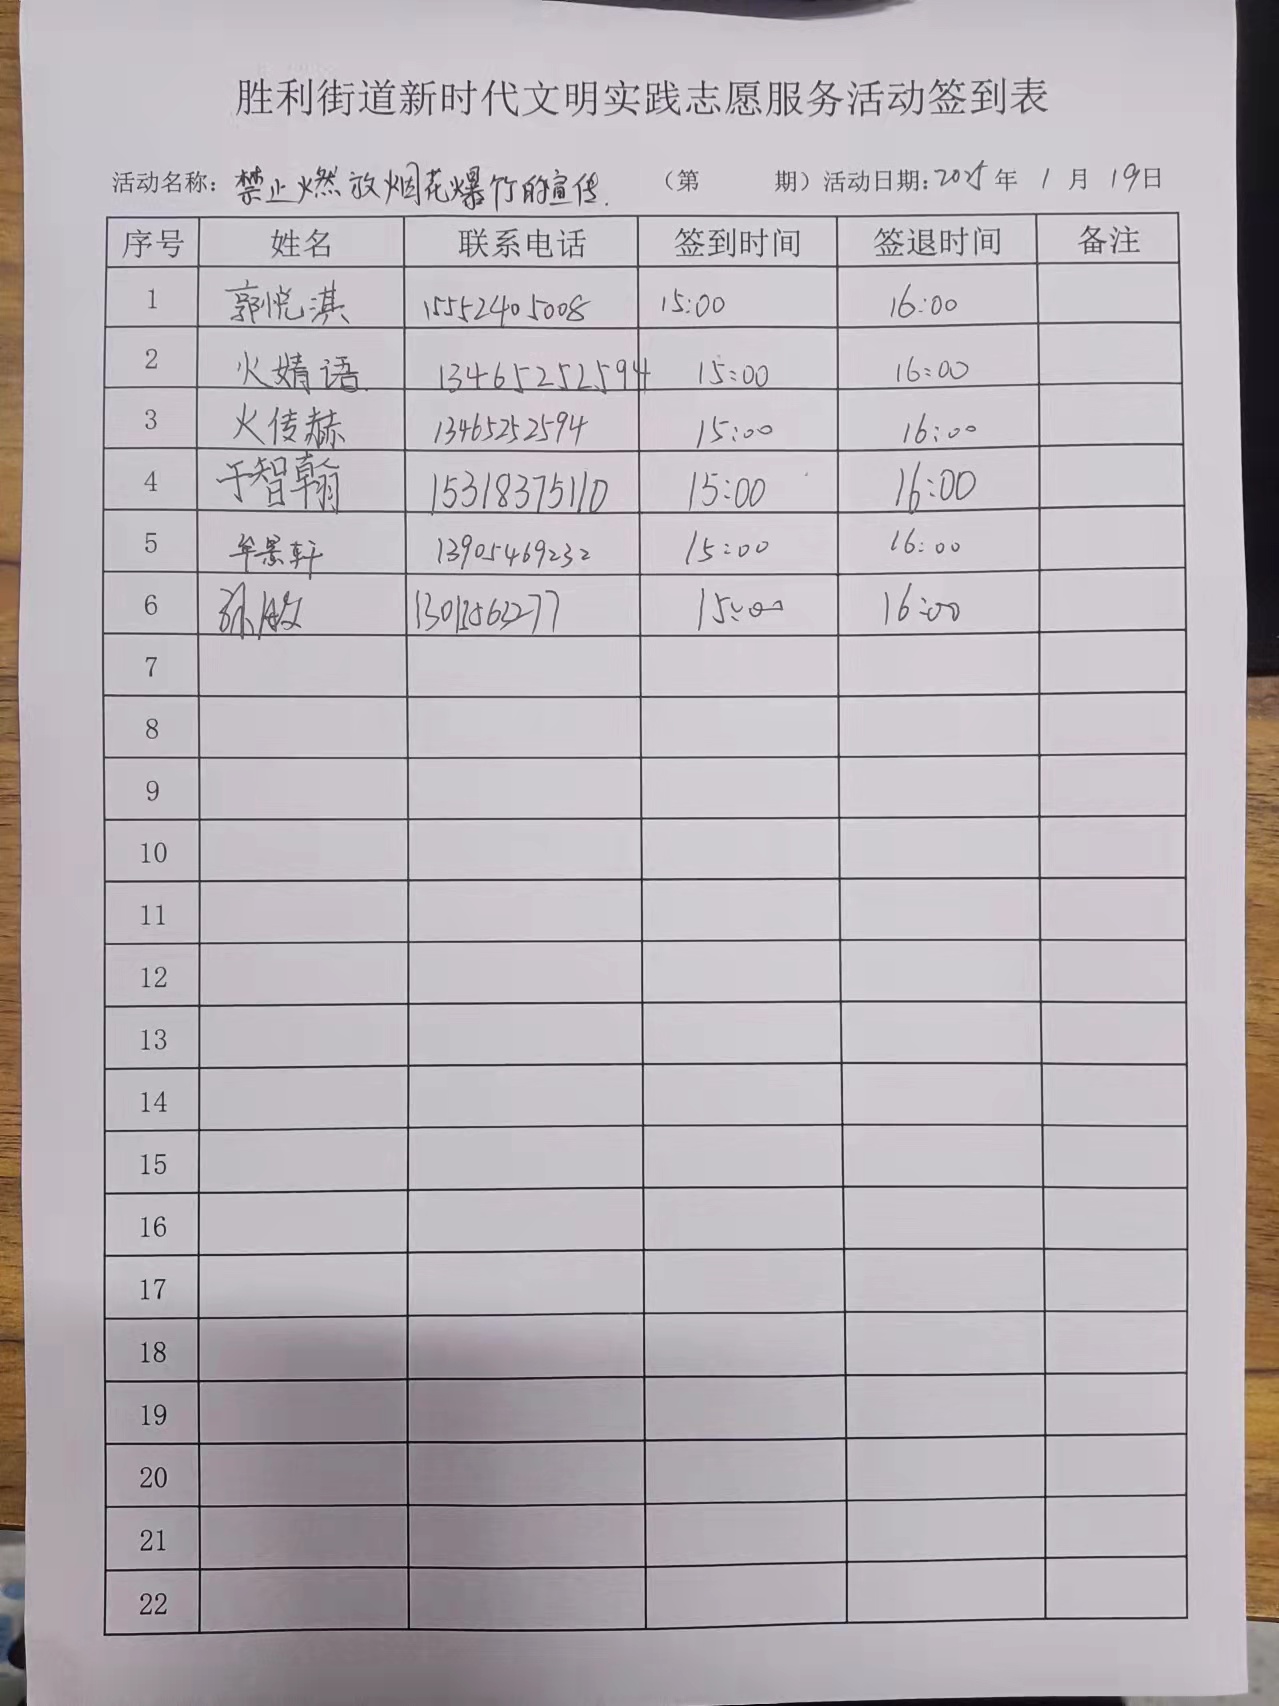 胜利街道新时代文明实践志愿服务活动签到表
活动名称：禁止燃放烟花爆竹的宣传. （第 期）活动日期：2025年 1 月 19日
序号 姓名 联系电话 签到时间 签退时间 备注
1 郭悦淇 15552405008 15:00 16:00
2 火婧语 13465252594 15:00 16:00
3 火传赫 13465252594 15:00 16:00
4 于智翰 15318375110 15:00 16:00
5 牟景轩 13905469232 15:00 16:00
6 15:00 16:00
7
8
9
10
11
12
13
14
15
16
17
18
19
20
21
22